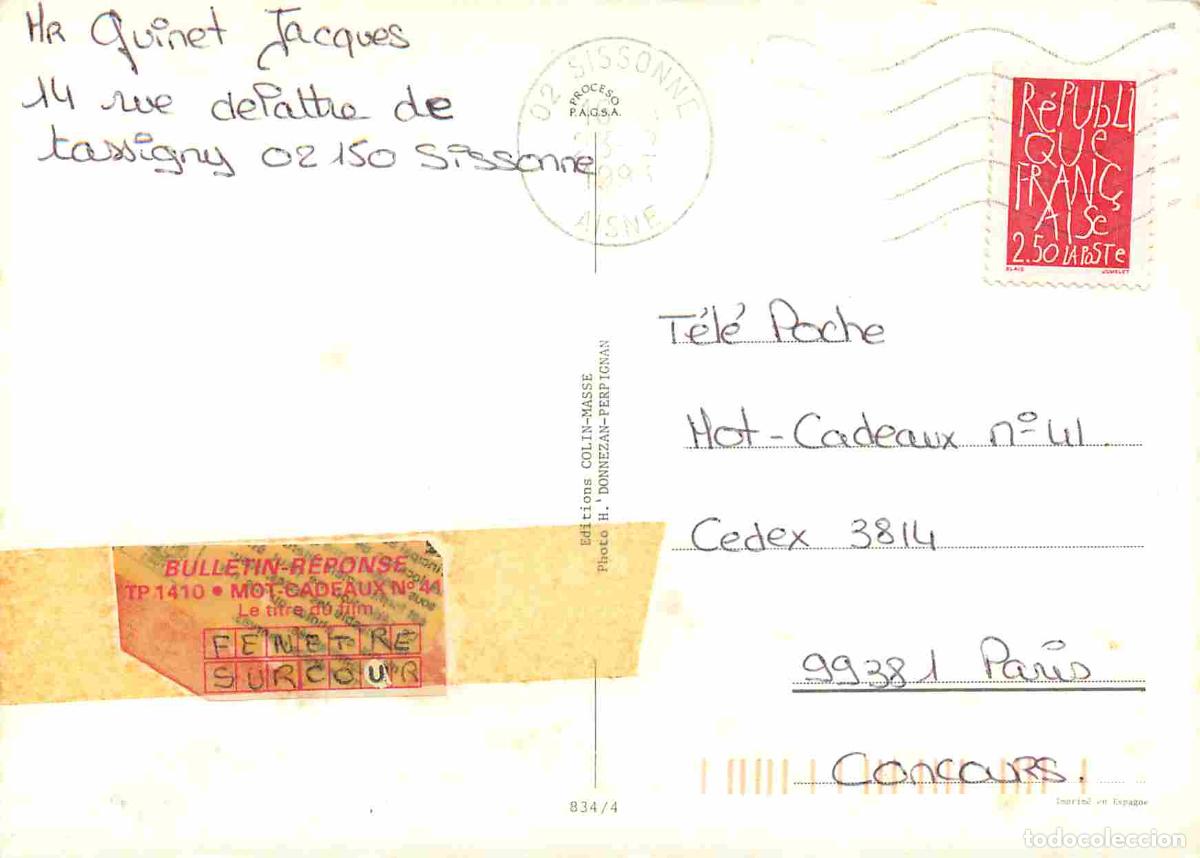 Mr Quinet Jacques
14 rue delattre de
tassigny 02150 Sissonne
02 SISSONNE
AISNE
PROCESO
P.A.G.S.A.
RéPUbLI
QUe
FRANÇ
AISe
2.50 LA POSTe
BLAIS JUMELET
Télé Poche
Mot-Cadeaux n° 41.
Cedex 3814
99381 Paris
Concours.
Editions COLIN-MASSE
Photo H. DONNEZAN-PERPIGNAN
BULLETIN-RÉPONSE
TP 1410 • MOT-CADEAUX N° 41
Le titre du film
FENETRE
SURCOUR
834/4
Imprimé en Espagne
todocoleccion